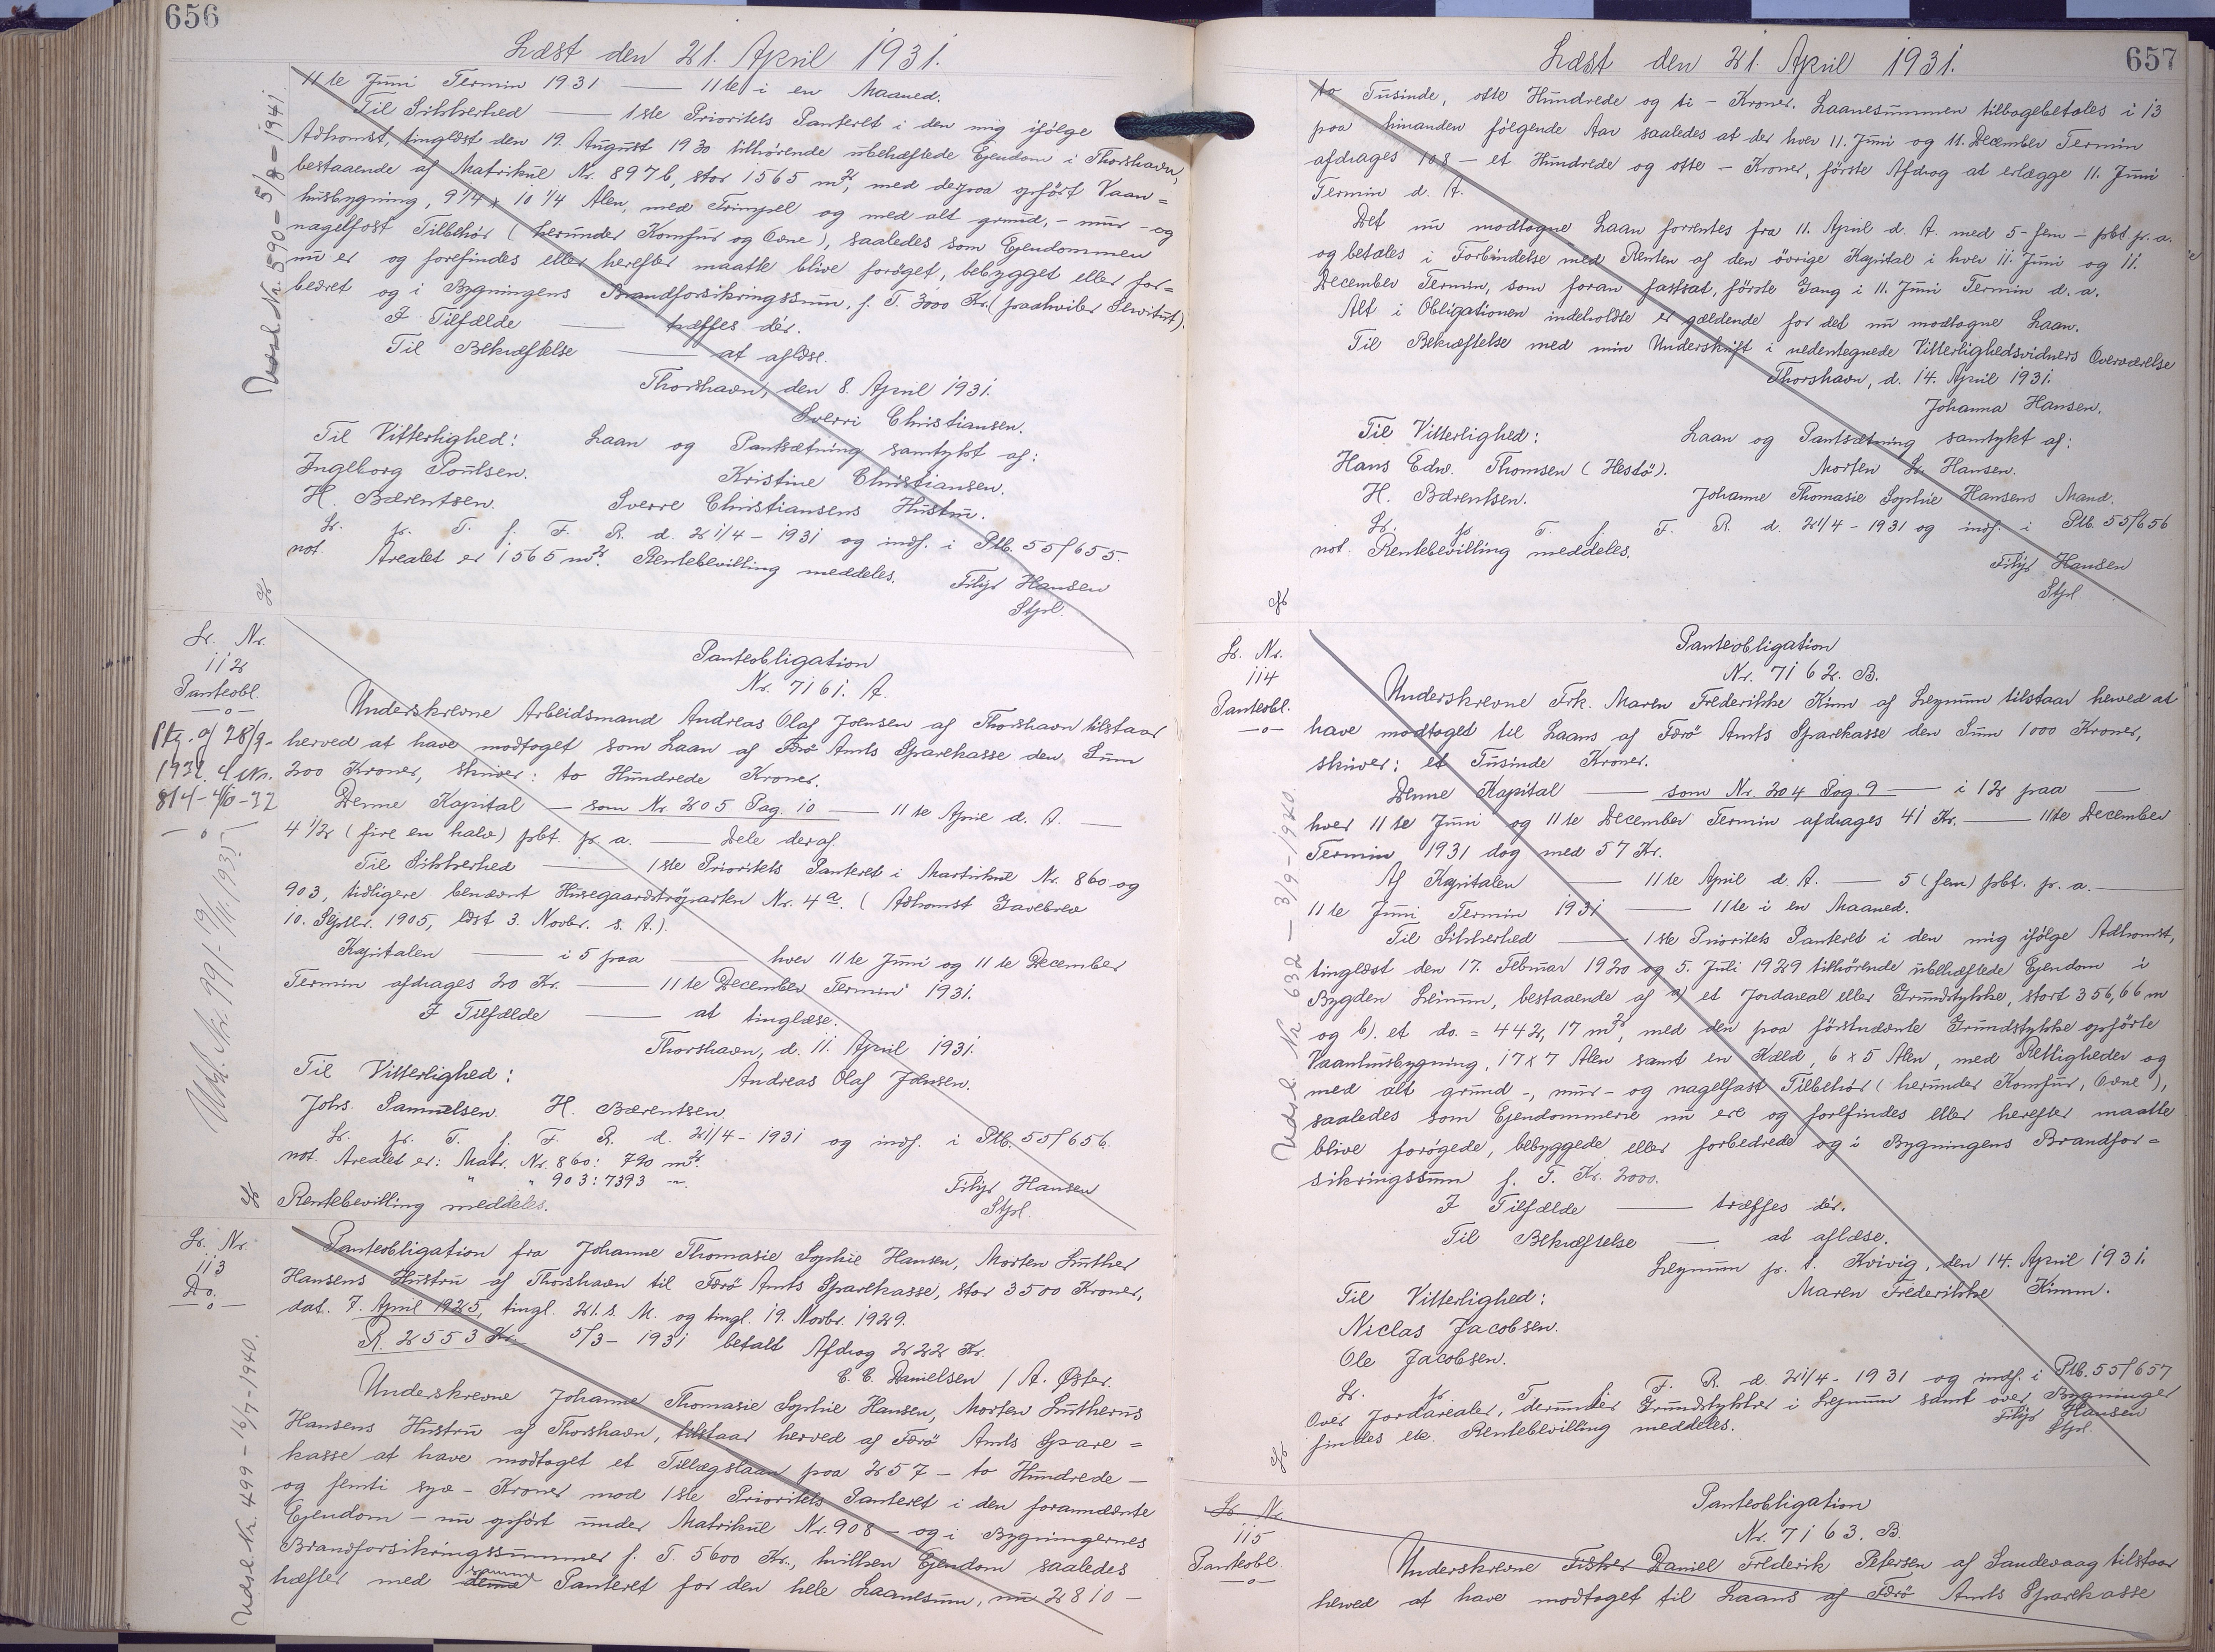 656
Læst den 21. April 1931.
11te Juni Termin 1931 — 11te i en Maaned.
Til Sikkerhed — 1ste Prioritets Panteret i den mig ifølge
Adkomst, tinglæst den 19. August 1930 tilhørende ubehæftede Ejendom i Thorshavn,
bestaaende af Matrikul Nr. 897b, stor 1565 m², med derpaa opført Vaan=
husbygning, 9 1/4 x 10 1/4 Alen, med Trimpel og med alt grund, - mur - og
nagelfast Tilbehør (herunder Komfur og Ovne), saaledes som Ejendommen
nu er og forefindes eller herefter maatte blive forøget, bebygget eller for=
bedret og i Bygningens Brandforsikringssum, p. T. 3000 Kr. (paahviler Servitut).
I Tilfælde — træffes dér.
Til Bekræftelse — at aflæse.
Thorshavn, den 8. April 1931.
Sverri Christiansen.
Til Vitterlighed: Laan og Pantsætning samtykt af:
Ingeborg Poulsen. Kristine Christiansen.
H. Bærentsen. Sverre Christiansens Hustru.
Lr. p. T. f. F. R. d. 21/4 - 1931 og indf. i Ptb. 55/655.
not. Arealet er 1565 m². Rentebevilling meddeles. Filip Hansen
Stpl.
Udsl. Nr. 590 - 5/8 - 1941
Lr. Nr.
112
Panteobl.
—o—
Ptg. af 28/9-
1932. L.Nr.
814 - 4/10 - 32
—o—
Udsl. Nr. 991 - 19/11 1935
Panteobligation
Nr. 7161. A.
Underskrevne Arbeidsmand Andreas Olaf Joensen af Thorshavn tilstaar
herved at have modtaget som Laan af Færø Amts Sparekasse den Sum
200 Kroner, skriver: to Hundrede Kroner.
Denne Kapital — som Nr. 205 Pag. 10 — 11te April d. A. —
4 1/2 (fire en halv) pbt. p. a. — Dele deraf.
Til Sikkerhed — 1ste Prioritets Panteret i Martrikul Nr. 860 og
903, tidligere benævnt Husegaardstrøparten Nr. 4a. (Adkomst Gavebrev
10. Septbr. 1905, læst 3. Novbr. s. A.).
Kapitalen — i 5 paa — hver 11te Juni og 11te December
Termin afdrages 20 Kr. — 11te December Termin 1931.
I Tilfælde — at tinglæse.
Thorshavn, d. 11. April 1931.
Til Vitterlighed: Andreas Olaf Joensen.
Johs. Samuelsen. H. Bærentsen.
Lr. p. T. f. F. R. d. 21/4 - 1931 og indf. i Ptb. 55/656.
not. Arealet er: Matr. Nr. 860: 790 m².
" " 903: 7393 —
Rentebevilling meddeles. Filip Hansen
Stpl.
Lr. Nr.
113
Do.
—o—
Udsl. Nr. 499 - 16/7 - 1940.
Panteobligation fra Johanne Thomasie Sophie Hansen, Morten Luther
Hansens Hustru af Thorshavn til Færø Amts Sparekasse, stor 3500 Kroner,
dat. 7. April 1925, tingl. 21. s. M. og tingl. 19. Novbr. 1929.
R. 2553 Kr. 5/3 - 1931 betalt Afdrag 222 Kr.
C. C. Danielsen / A. Øster.
Underskrevne Johanne Thomasie Sophie Hansen, Morten Lutherus
Hansens Hustru af Thorshavn, tilstaar herved af Færø Amts Spare=
kasse at have modtaget et Tillægslaan paa 257 - to Hundrede -
og femti syv - Kroner mod 1ste Prioritets Panteret i den forannævnte
Ejendom - nu opført under Matrikul Nr. 908 - og i Bygningernes
Brandforsikringssummer p. T. 5600 Kr., hvilken Ejendom saaledes
hæfter med denne samme Panteret for den hele Laanesum, nu 2810 -
657
Læst den 21. April 1931.
to Tusinde, otte Hundrede og ti - Kroner. Laanesummen tilbagebetales i 13
paa hinanden følgende Aar saaledes at der hver 11. Juni og 11. December Termin
afdrages 108 - et Hundrede og otte - Kroner, første Afdrag at erlægge 11. Juni
Termin d. A.
Det nu modtagne Laan forrentes fra 11. April d. A. med 5 - fem - pbt p. a.
og betales i Forbindelse med Renten af den øvrige Kapital i hver 11. Juni og 11.
December Termin, som foran fastsat, første Gang i 11. Juni Termin d. a.
Alt i Obligationen indeholdte er gældende for det nu modtagne Laan.
Til Bekræftelse med min Underskrift i nedentegnede Vitterlighedsvidners Overværelse
Thorshavn, d. 14. April 1931.
Johanna Hansen.
Til Vitterlighed: Laan og Pantsætning samtykt af:
Hans Edw. Thomsen (Hestø). Morten L. Hansen.
H. Bærentsen. Johanne Thomasie Sophie Hansens Mand.
Lr. p. T. f. F. R. d. 21/4 - 1931 og indf. i Ptb. 55/656
not. Rentebevilling meddeles. Filip Hansen
Stpl.
Lr. Nr.
114
Panteobl.
—o—
Udsl. Nr. 632 - 3/9 - 1940.
Panteobligation
Nr. 7162. B.
Underskrevne Frk. Maren Frederikke Kimm af Leynum tilstaar herved at
have modtaget til Laans af Færø Amts Sparekasse den Sum 1000 Kroner,
skriver: et Tusinde Kroner.
Denne Kapital — som Nr. 204 Pag. 9 — i 12 paa —
hver 11te Juni og 11te December Termin afdrages 41 Kr. — 11te December
Termin 1931 dog med 57 Kr.
Af Kapitalen — 11te April d. A. — 5 (fem) pbt. p. a. —
11te Juni Termin 1931 — 11te i en Maaned.
Til Sikkerhed — 1ste Prioritets Panteret i den mig ifølge Adkomst,
tinglæst den 17. Februar 1920 og 5. Juli 1929 tilhørende ubehæftede Ejendom i
Bygden Leinum, bestaaende af a) et Jordareal eller Grundstykke, stort 356,66 m
og b). et do. = 442,17 m², med den paa førstnævnte Grundstykke opførte
Vaanhusbygning, 17 x 7 Alen samt en Kæld, 6 x 5 Alen, med Rettigheder og
med alt grund -, mur - og nagelfast Tilbehør (herunder Komfur, Ovne),
saaledes som Ejendommene nu ere og forefindes eller herefter maatte
blive forøgede, bebyggede eller forbedrede og i Bygningens Brandfor=
sikringssum p. T. Kr. 2000.
I Tilfælde — træffes dér.
Til Bekræftelse — at aflæse.
Leynum p. t. Kvivig, den 14. April 1931.
Til Vitterlighed: Maren Frederikke Kimm.
Niclas Jacobsen.
Ole Jacobsen.
Lr. p. T. f. F. R. d. 21/4 - 1931 og indf. i Ptb. 55/657
Over Jordarealer, derunder Grundstykker i Lejnum samt over Bygninger
findes etc. Rentebevilling meddeles. Filip Hansen
Stpl.
Lr. Nr.
115
Panteobl.
—o—
Panteobligation
Nr. 7163. B.
Underskrevne Fisker Daniel Frederik Petersen af Sandevaag tilstaar
herved at have modtaget til Laans af Færø Amts Sparekasse